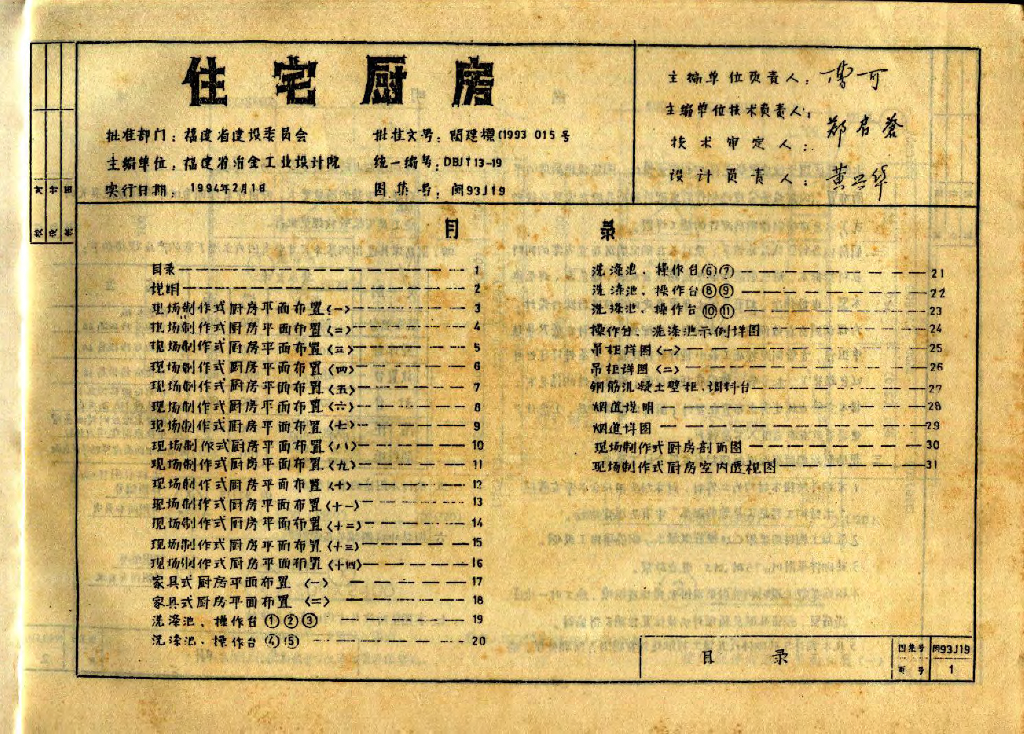 住宅厨房
批准部门：福建省建设委员会
批准文号：闽建标(1993 015号
主编单位：福建省冶金工业设计院
统一编号：DBJT13-19
实行日期：1994年2月1日
图集号：闽93J19
主编单位负责人：
主编单位技术负责人：
技术审定人：
设计负责人：黄
目录
目录 1
说明 2
现场制作式厨房平面布置〈一〉 3
现场制作式厨房平面布置〈二〉 4
现场制作式厨房平面布置〈三〉 5
现场制作式厨房平面布置〈四〉 6
现场制作式厨房平面布置〈五〉 7
现场制作式厨房平面布置〈六〉 8
现场制作式厨房平面布置〈七〉 9
现场制作式厨房平面布置〈八〉 10
现场制作式厨房平面布置〈九〉 11
现场制作式厨房平面布置〈十〉 12
现场制作式厨房平面布置〈十一〉 13
现场制作式厨房平面布置〈十二〉 14
现场制作式厨房平面布置〈十三〉 15
现场制作式厨房平面布置〈十四〉 16
家具式厨房平面布置〈一〉 17
家具式厨房平面布置〈二〉 18
洗涤池、操作台①②③ 19
洗涤池、操作台④⑤ 20
洗涤池、操作台⑥⑦ 21
洗涤池、操作台⑧⑨ 22
洗涤池、操作台⑩⑪ 23
操作台、洗涤池示例详图 24
吊柜详图〈一〉 25
吊柜详图〈二〉 26
钢筋混凝土壁柜、调料台 27
烟道说明 28
烟道详图 29
现场制作式厨房剖面图 30
现场制作式厨房室内透视图 31
目录
图集号 闽93J19
页号 1